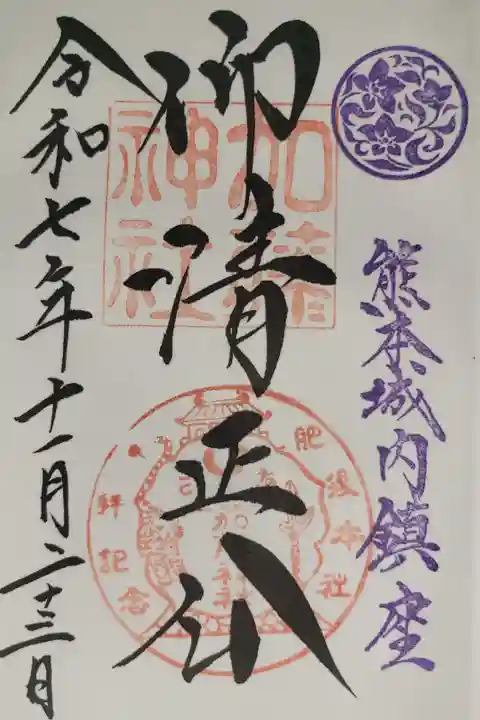 熊本城内鎮座
仰清正公
加藤神社
肥後本社
参拝記念
令和七年十一月二十三日